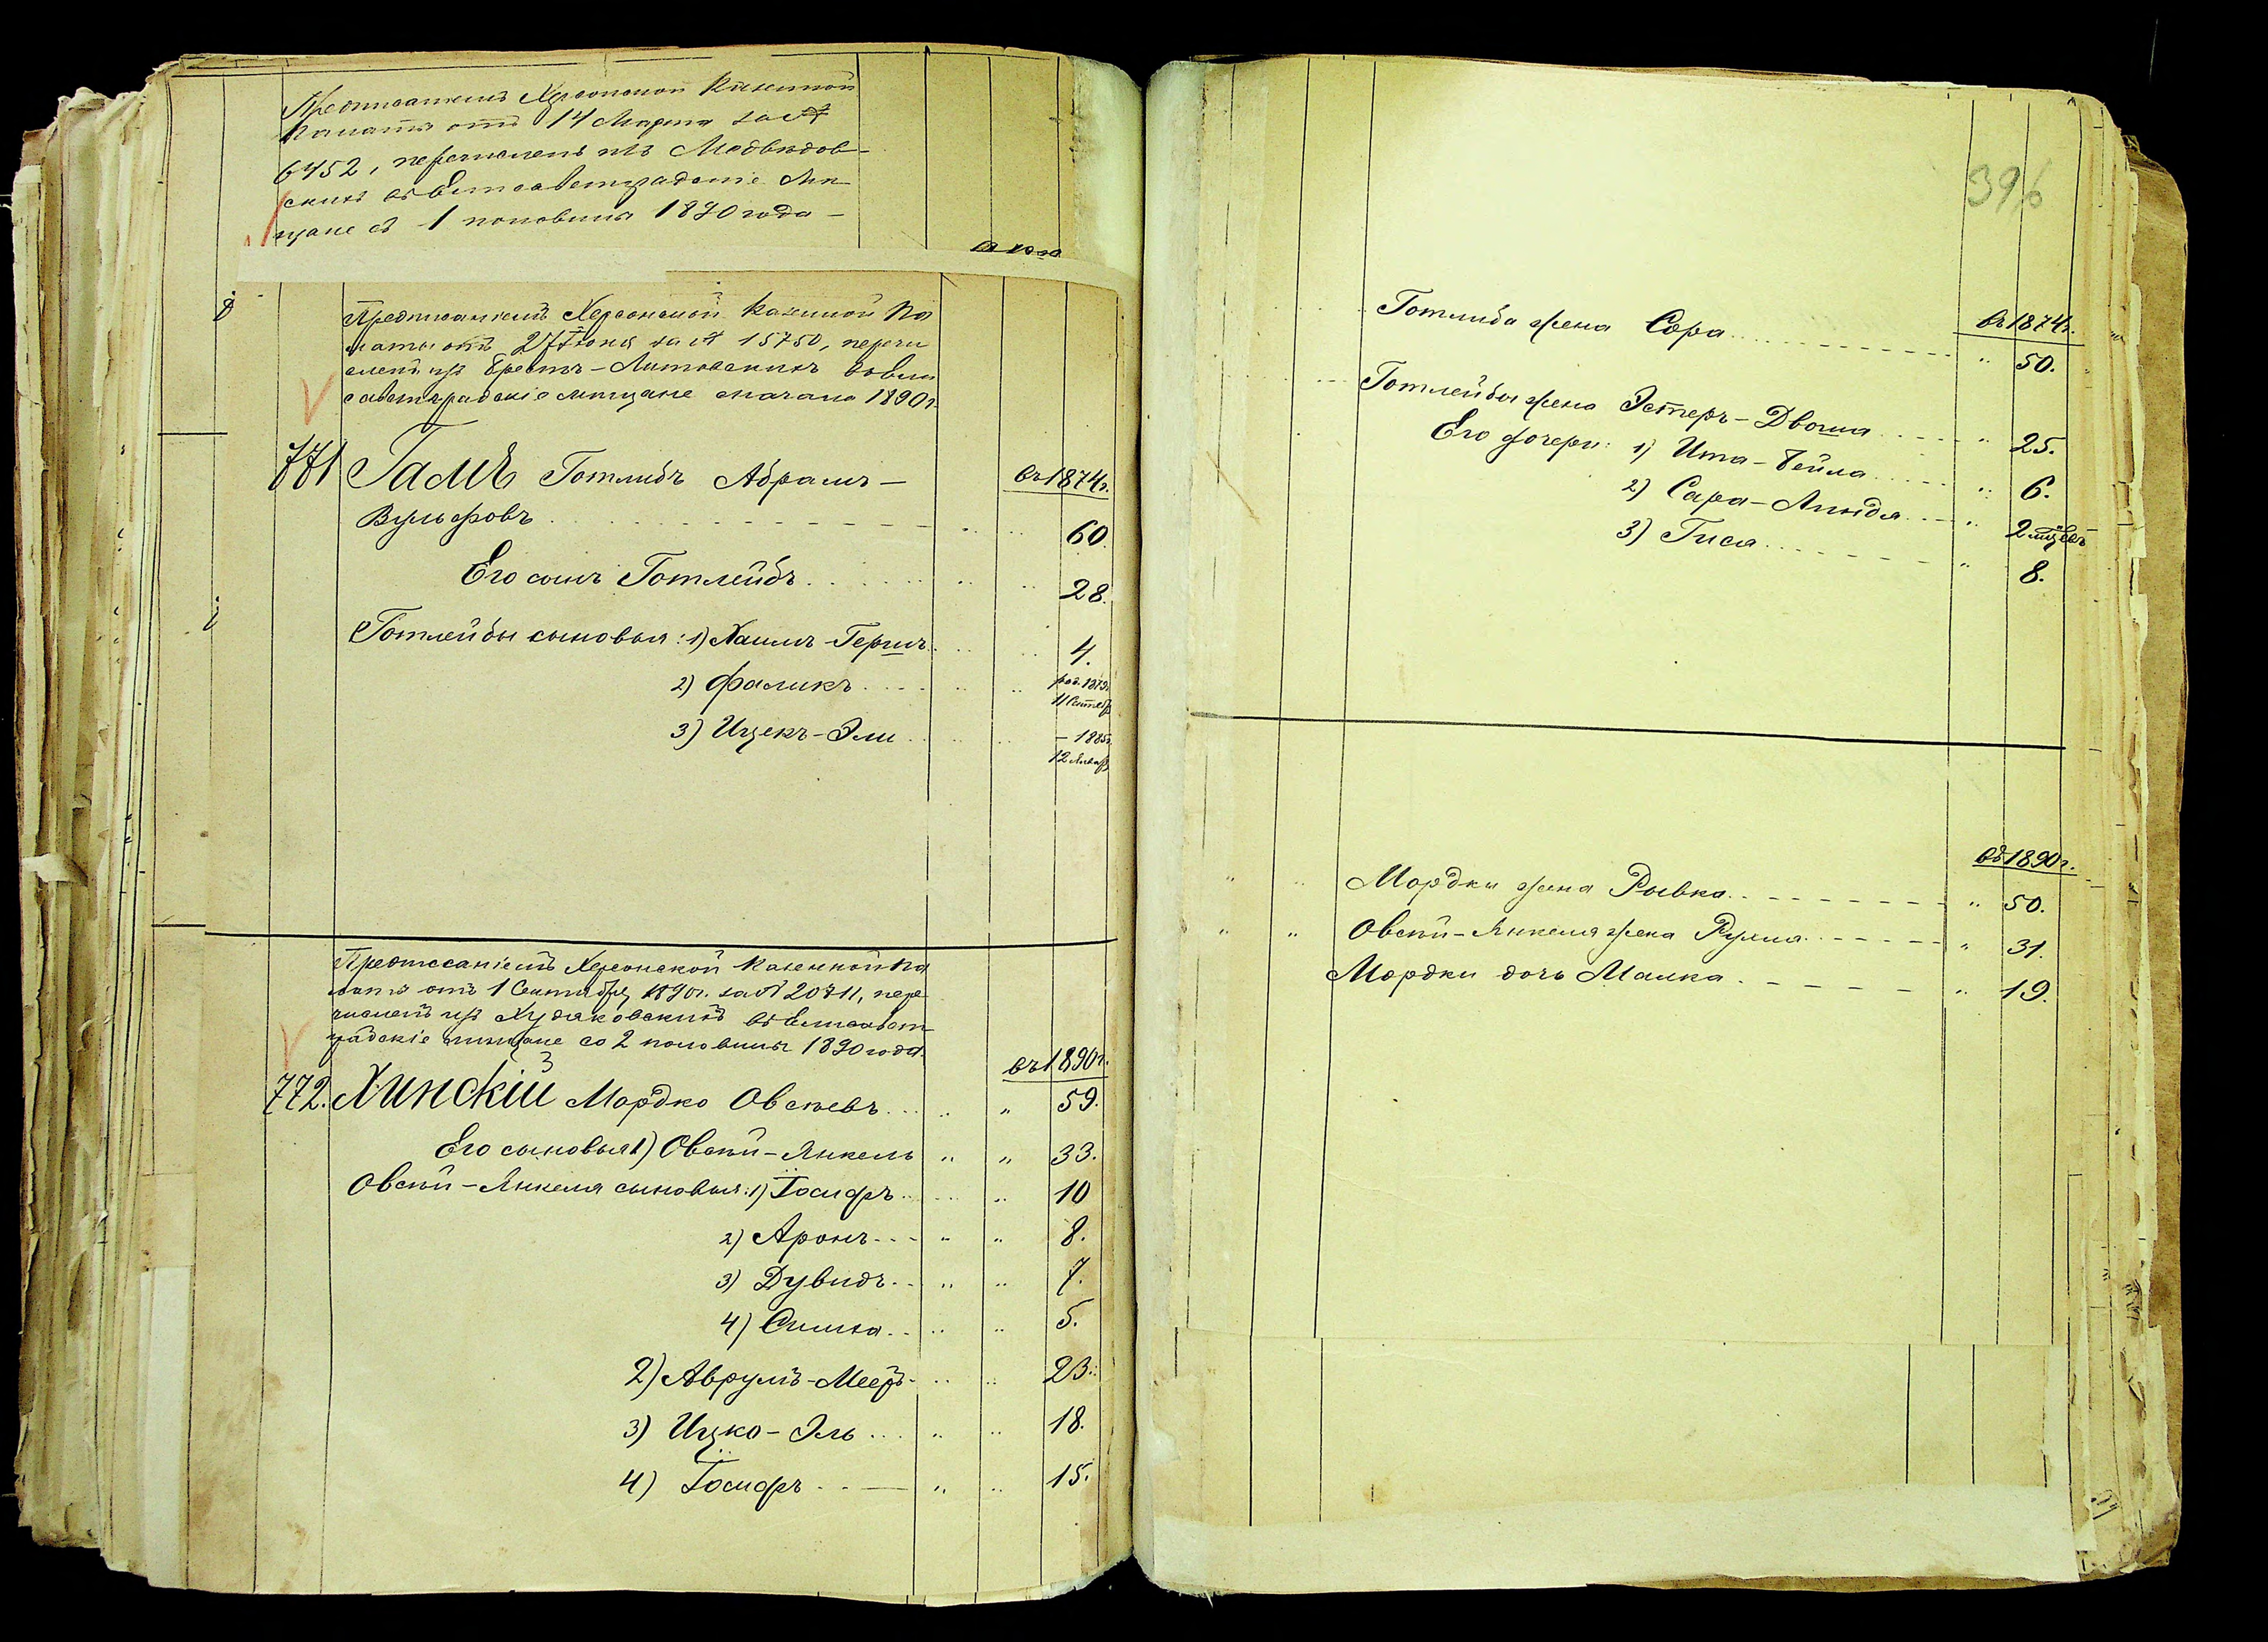 Предписаніемъ Херсонской Казенной
Палаты отъ 14 Марта за №
6452, перечисленъ изъ Медвѣдов-
скихъ въ Елисаветградскіе мѣ-
щане съ 1 половины 1890 года —
Предписаніемъ Херсонской Казенной Па
латы отъ 27 Іюня за № 15750, перечи
сленъ изъ Брестъ-Литовскихъ въ Ели
саветградскіе мѣщане сначала 1890 г.
771 Гамъ Готлибъ Абрамъ — въ 1874 г.
Вульфовъ 60.
Его сынъ Готлейбъ 28.
Готлейбы сыновья: 1) Хаимъ-Гершъ 4.
2) Фаликъ род. 1879 г.
11 Сентяб
3) Ицекъ-Эли — 1885 г.
12 Январ
Предписаніемъ Херсонской Казенной Па
латы отъ 1 Сентября 1890 г. за № 20711, пере
численъ изъ Худяковскихъ въ Елисавет
градскіе мѣщане со 2 половины 1890 года.
въ 1890 г.
772. Хинскій Мордко Овсѣевъ " 59.
Его сыновья 1) Овсѣй-Янкель " " 33.
Овсѣй-Янкеля сыновья: 1) Іосифъ " 10
2) Аронъ " " 8.
3) Дувидъ " " 7.
4) Симха " " 5.
2) Аврумъ-Мееръ " " 23.
3) Ицко-Эль " " 18.
4) Іосифъ " " 15.
396
въ 1874 г.
Готлиба жена Сора " 50.
Готлейбы жена Эстеръ-Двоша " 25.
Его дочери: 1) Ита-Бейла " 6.
2) Сара-Линдя " 2 мцѣвъ
3) Гися " 8.
въ 1890 г.
Мордки жена Рывка " 50.
Овсѣй-Янкеля жена Рухля " 31.
Мордки дочь Малка " 19.